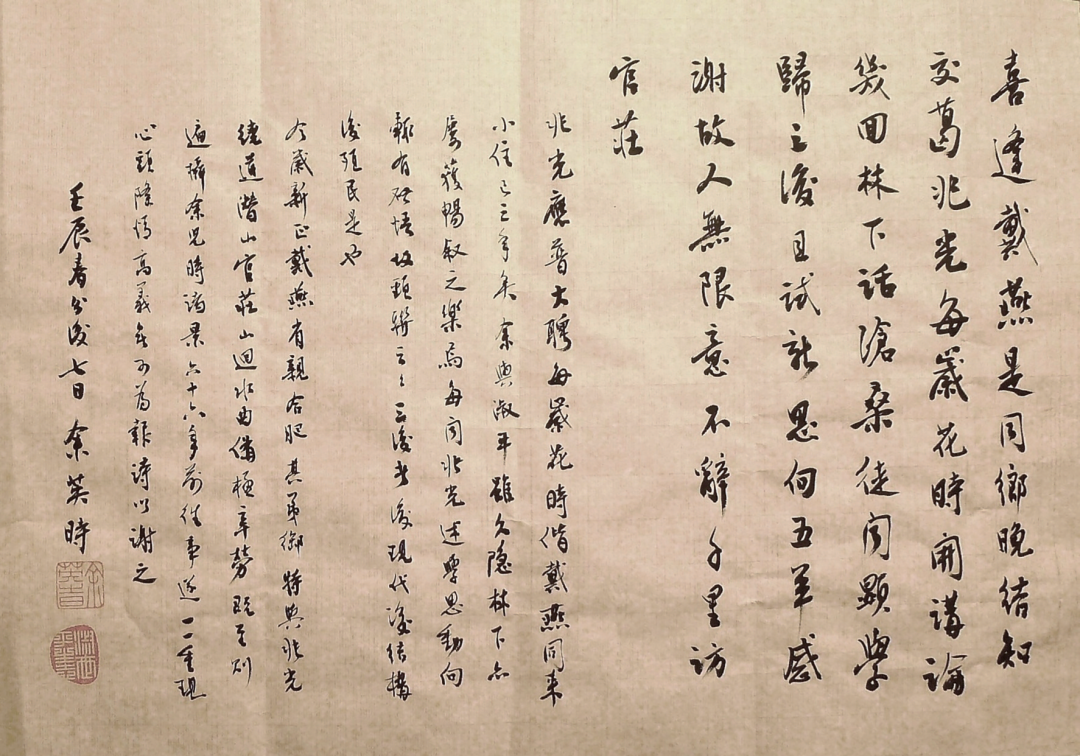 喜逢戴燕是同鄉晚結知
交葛兆光每歲花時開講論
幾回林下話滄桑徒聞顯學
歸三後且試新思向五羊感
謝故人無限意不辭千里訪
官莊
兆光應普大聘每歲花時偕戴燕同來
小住已三年矣余與淑平雖久隱林下亦
屢獲暢敘之樂焉每聞兆光述學思動向
輒有啟悟故題幣云云三後者後現代後結構
後殖民是也
今歲新正戴燕省親合肥其弟衛特與兆光
繞道潛山官莊山迴水曲備極辛勞既至則
遍攝余兒時諸景六十六年前往事遂一一重現
心頭隆情高義無可為報詩以謝之
壬辰春分後七日 余英時